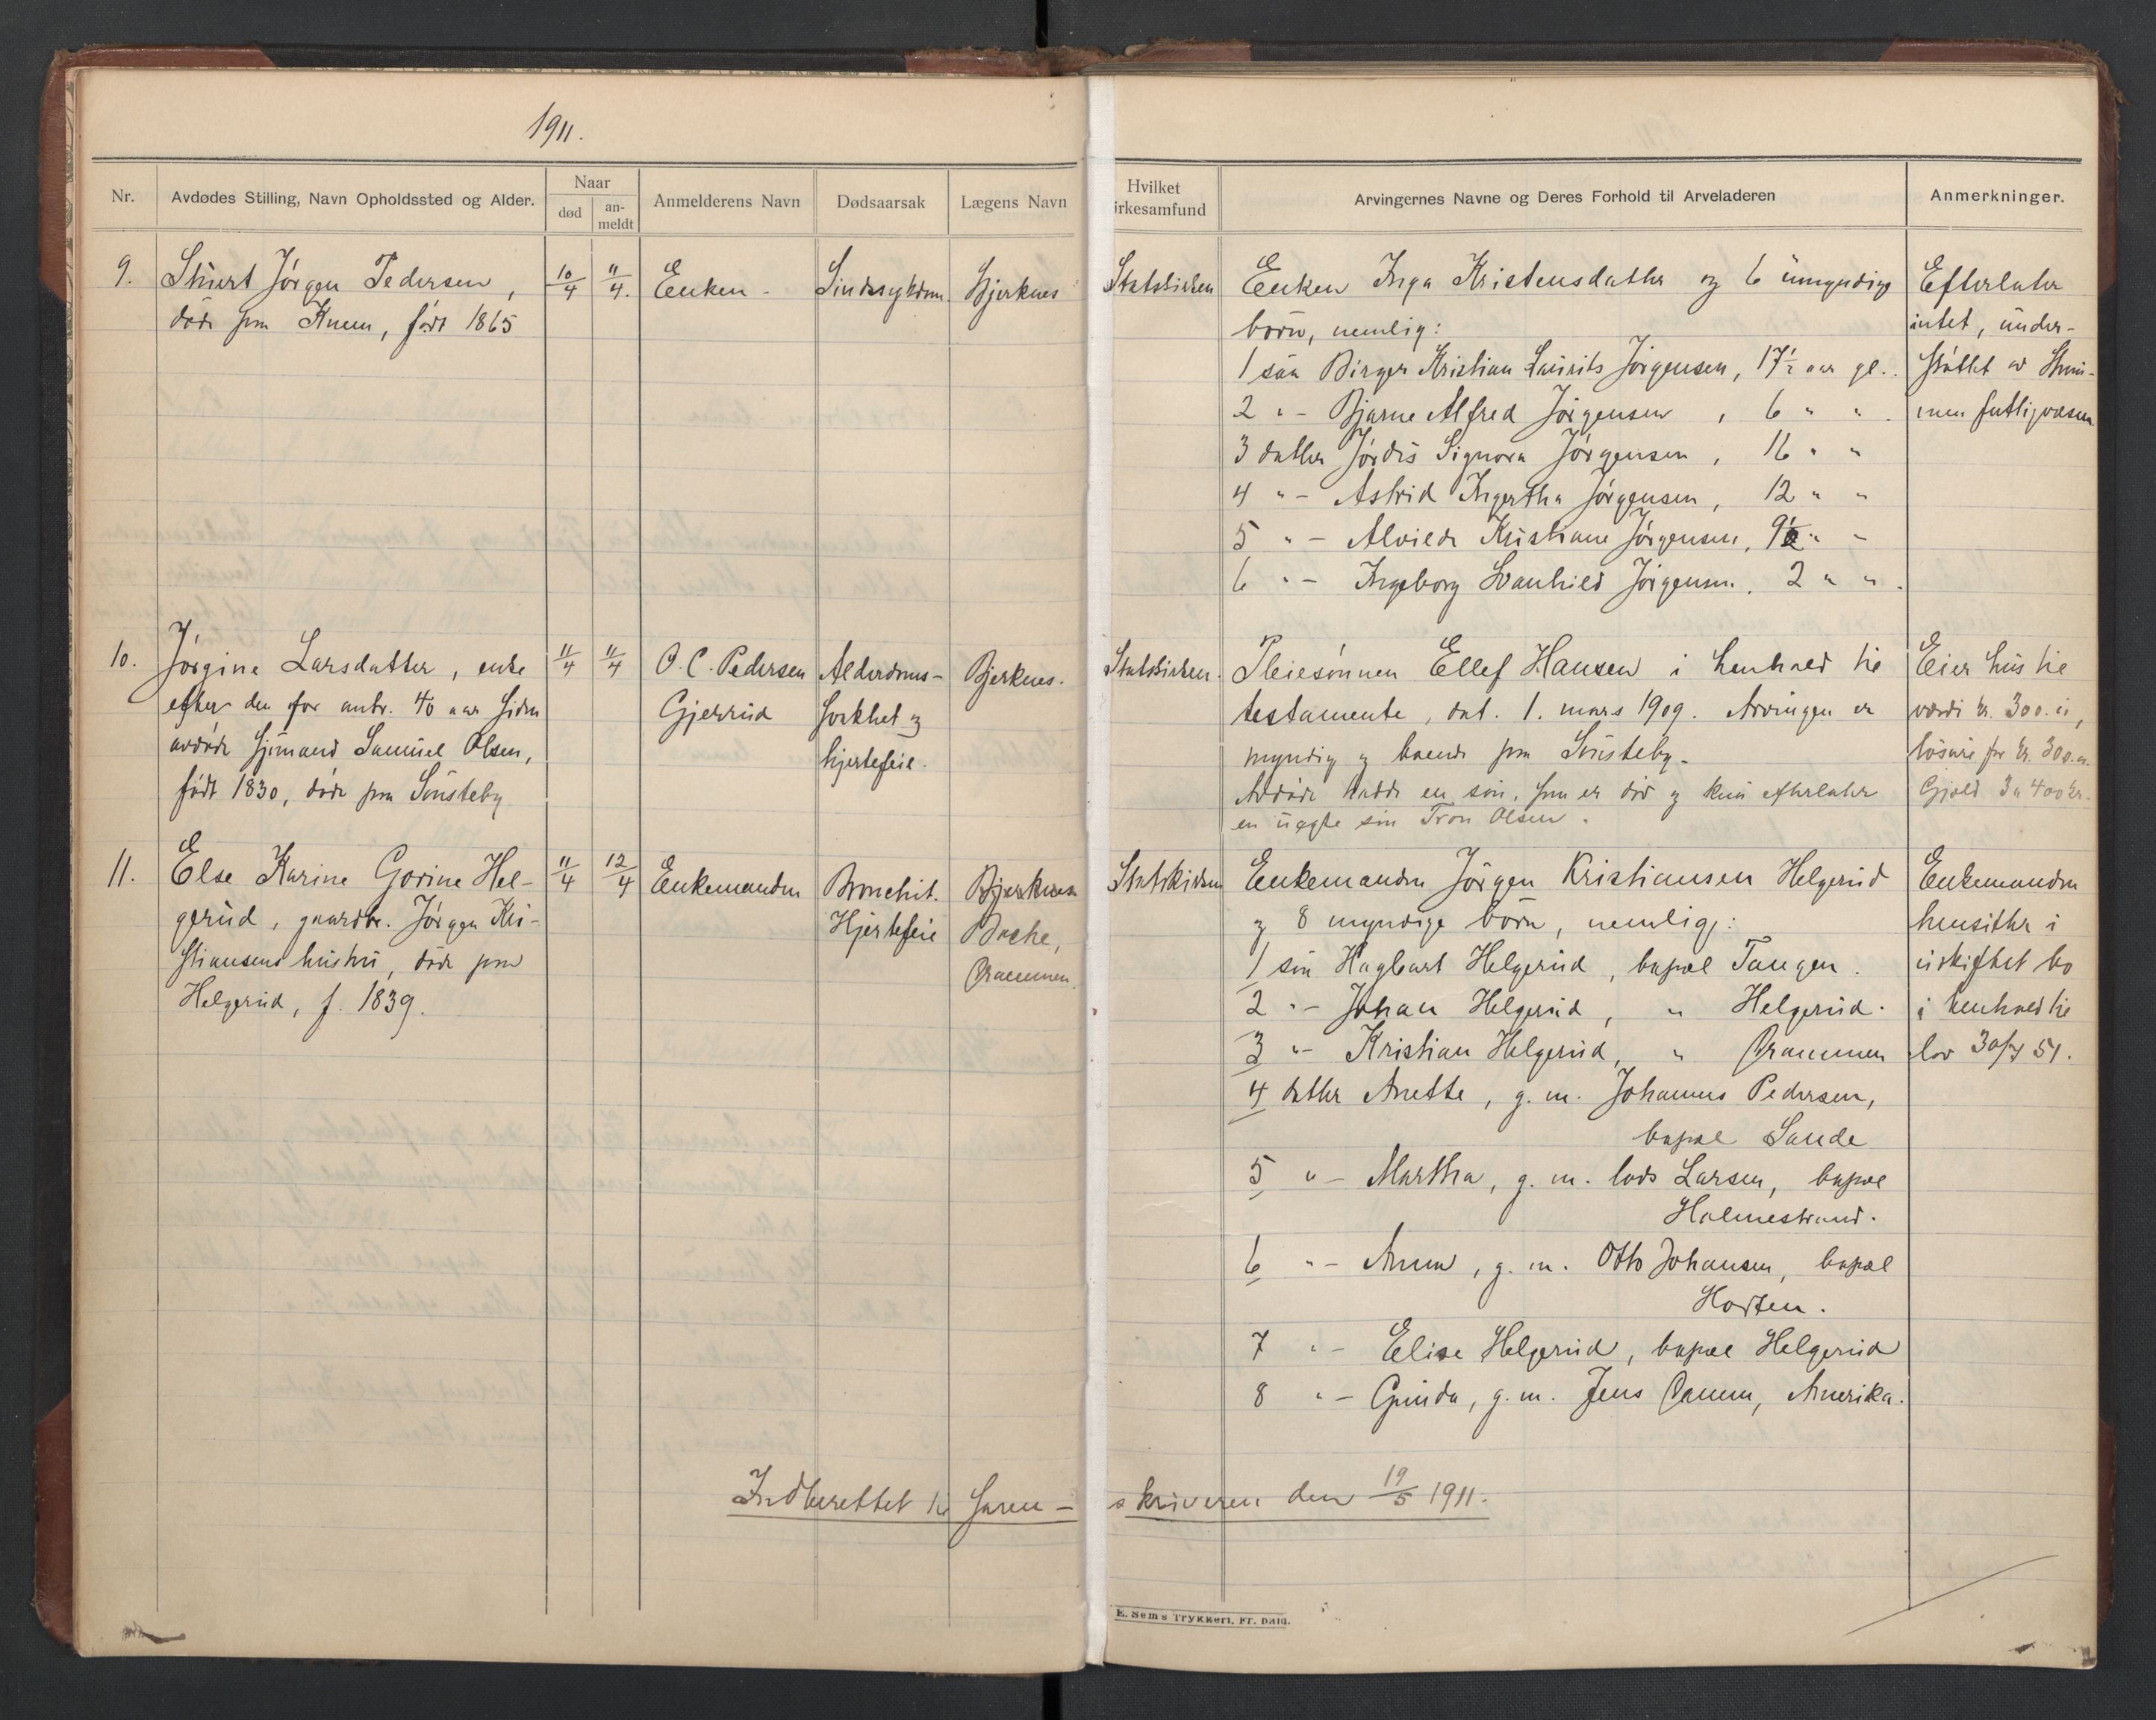 1911.
Nr.
Avdødes Stilling, Navn Opholdssted og Alder.
Naar
død
an-
meldt
Anmelderens Navn
Dødsaarsak
Lægens Navn
Hvilket
irkesamfund
Arvingernes Navne og Deres Forhold til Arveladeren
Anmerkninger.
9.
Jörgen Pedersen,
döde paa Knem, födt 1865
10/4
11/4.
Enken -
Sindssygdom
Bjerknes
Statskirken
Enken Inga Kristensdatter og 6 umyndige
börn, nemlig:
1 sön Birger Kristian Laurits Jörgensen, 17½ aar gl.
2 " - Bjarne Alfred Jörgensen , 6 " " .
3 datter Jördis Signora Jörgensen , 16 " "
4 " - Astrid Ingertha Jörgensen , 12 " "
5 " - Alvilde Kristiane Jörgensen, 9½ " "
6 " - Ingeborg Svanhild Jörgensen . 2 " " .
Efterlater
intet, under-
støttet av Strøm-
men fattigvæsen.
10.
Jörgine Larsdatter, enke
efter den for antr. 40 aar siden
avdöde sjömand Samuel Olsen,
födt 1830, döde paa Sönsteby
11/4
11/4
O. C. Pedersen
Gjerrud
Alderdoms-
svakhet og
hjertefeil.
Bjerknes.
Statskirken.
Pleiesönnen Ellef Hansen i henhold til
testamente, dat. 1. mars 1909. Arvingen er
myndig og boende paa Sönsteby.
Avdöde hadde en sön, som er död og kun efterlater
en uegte sön Tron Olsen.
Eier hus til
værdi kr. 300.
lösöre for kr. 300.
Gjæld 3 a 400 kr.
11.
Else Karine Gorine Hel-
gerud, gaardbr. Jörgen Kri-
stiansens hustru, döde paa
Helgerud, f. 1839.
11/4
12/4
Enkemanden
Bronchit.
Hjertefeil
Bjerknes
Bache,
Drammen.
Statskirken
Enkemanden Jörgen Kristiansen Helgerud
og 8 myndige börn, nemlig:
1 sön Hagbart Helgerud, bopæl Tangen.
2 " - Johan Helgerud, " Helgerud.
3 " - Kristian Helgerud, " Drammen
4 datter Anette, g. m. Johannes Pedersen,
bopæl Sande
5 " - Martha, g. m. lods Larsen, bopæl
Holmestrand.
6 " - Anna, g. m. Otto Johansen, bopæl
Horten.
7 " - Elise Helgerud, bopæl Helgerud
8 " - Gunda, g. m. Jens Damm, Amerika.
Enkemanden
hensitter i
uskiftet bo
i henhold til
lov 30/7 51.
Indberettet til Soren-
skriveren den 19/5 1911.
E. Sems Trykkeri, Fr.hald.